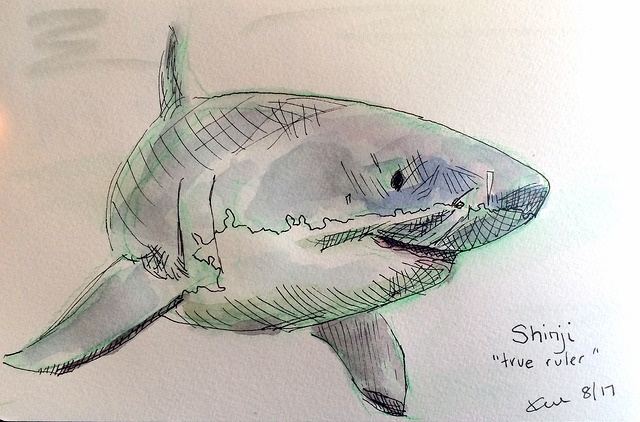 Shinji
"true ruler"
8/17